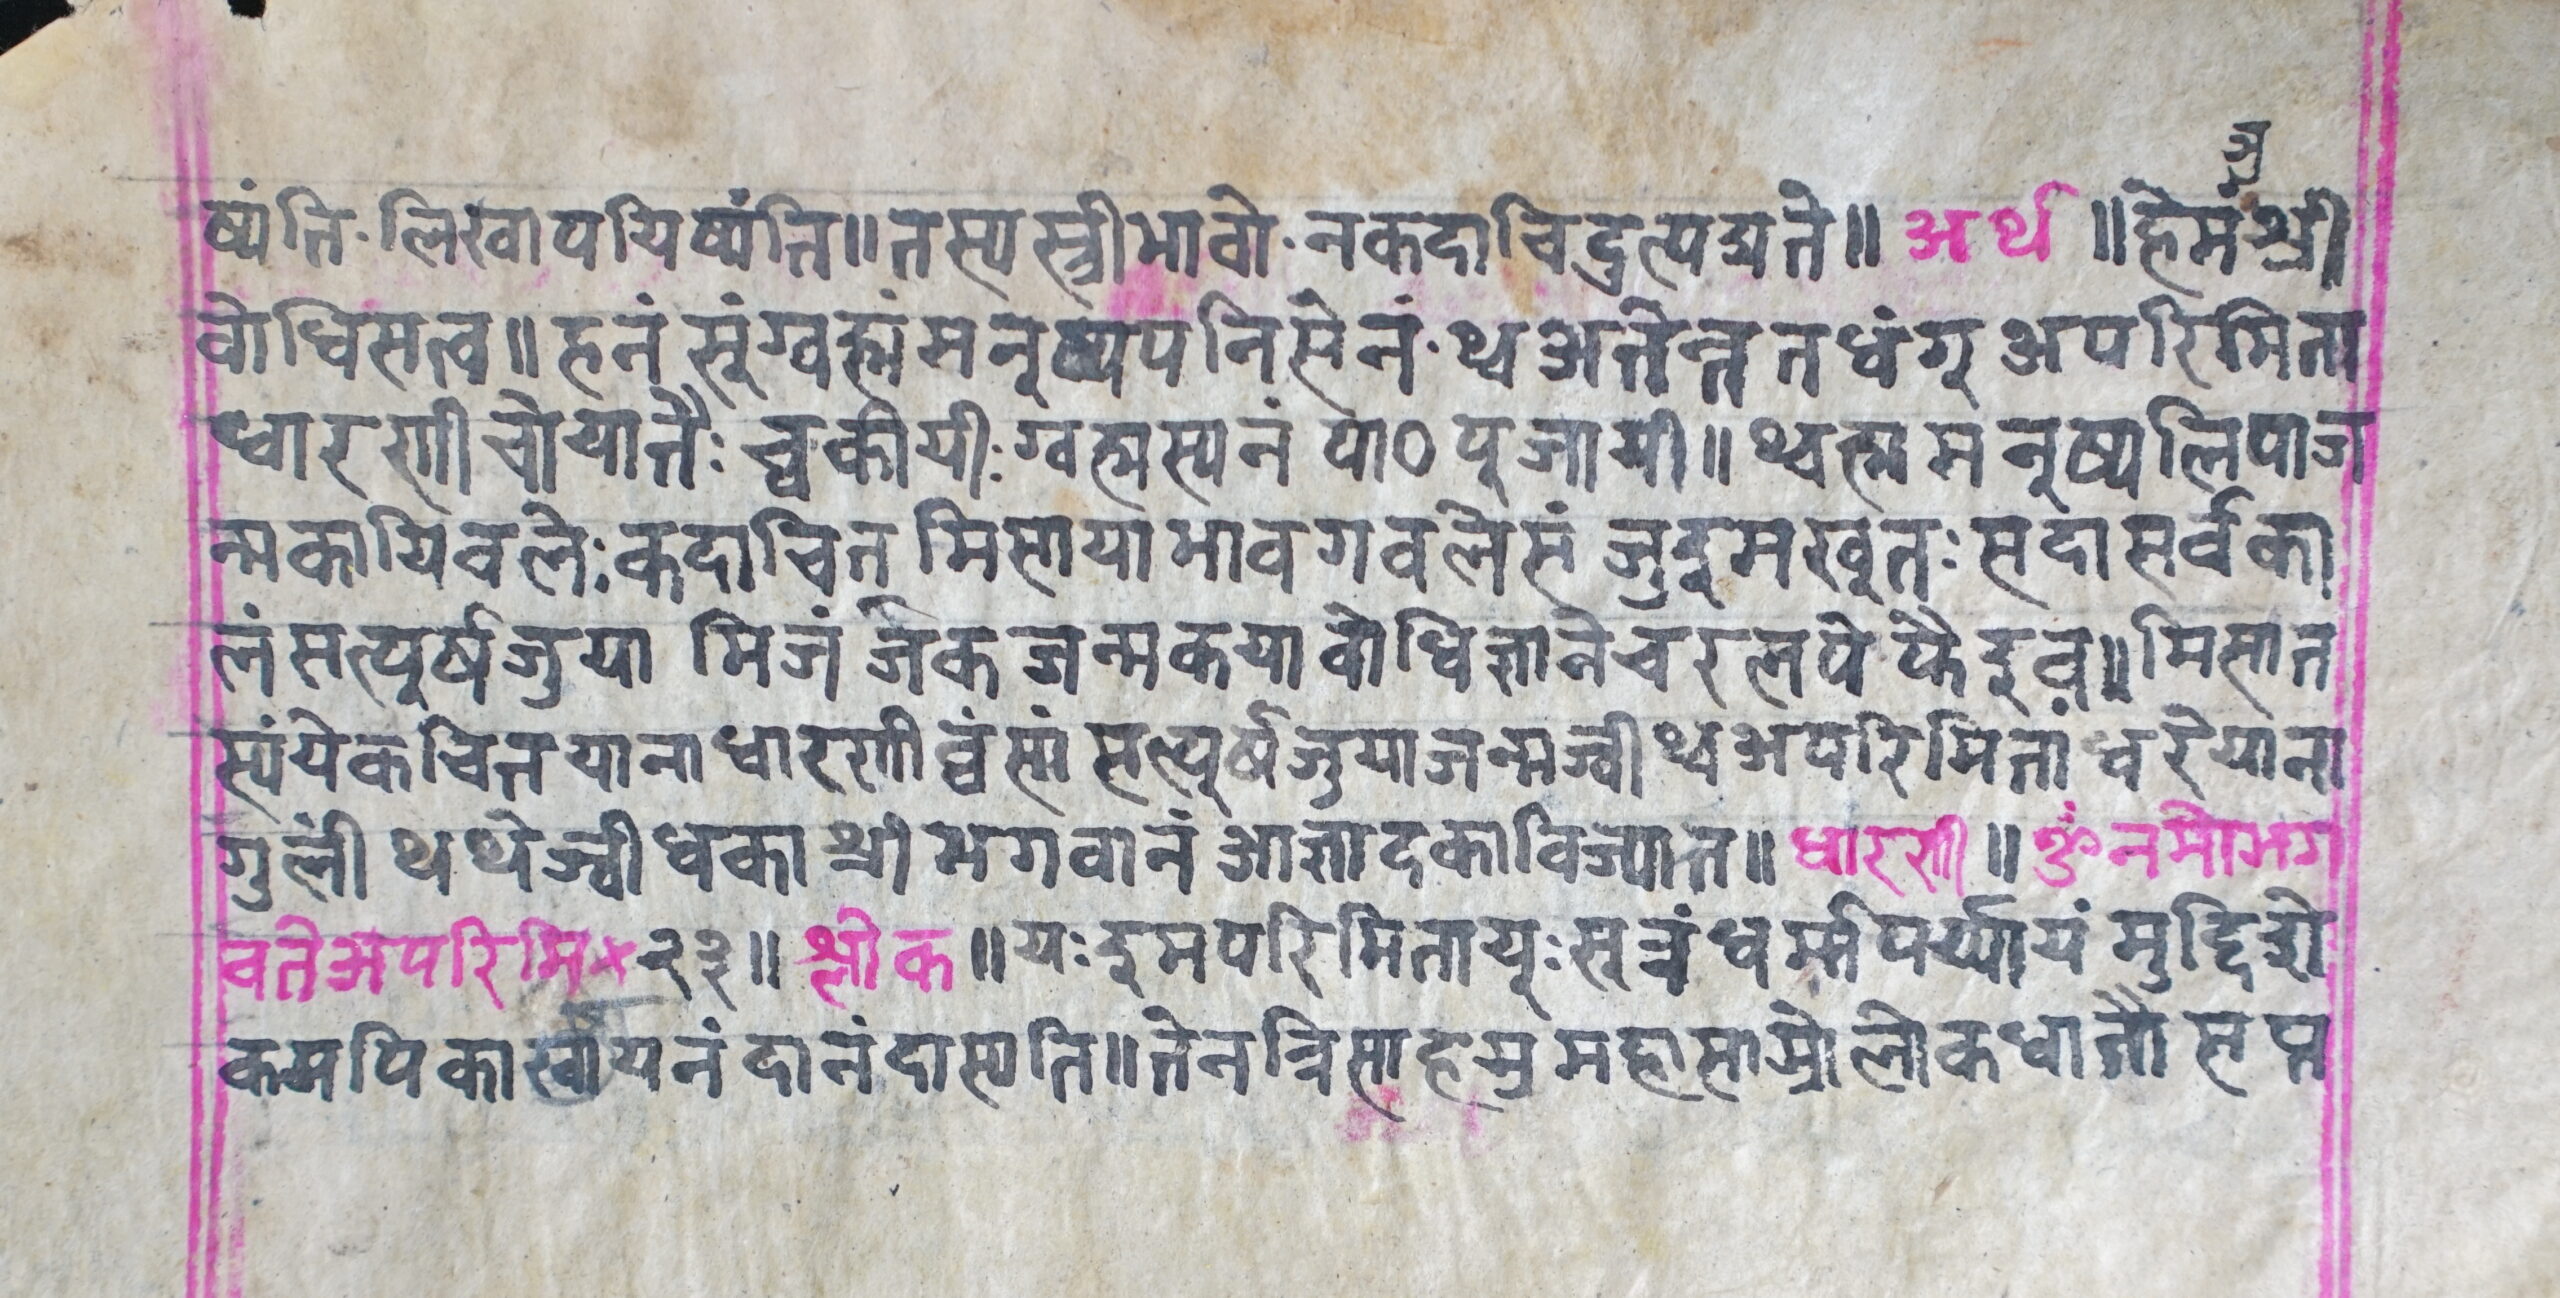 ञ्जु
ष्यंति · लिखापयिष्यंति ॥ तस्य स्त्रीभावो · नकदाचिदुत्पद्यते ॥ अर्थ ॥ हेमंश्री
वोधिसत्व ॥ हनं सूंग्वह्मं मनूष्यपनिसेनं · थ्व अत्तेन्त तधंगू अपरिमिता
धारणी चोयातै : च्वकीयी : ग्वह्मस्यनं पा० पूजायी ॥ थ्वह्म मनूष्यलिपाज
न्मकायिवले : कदाचित मिसायाभावगवलेसं जुइमखूत : सदासर्वका
लं सत्पूर्षजुया मिजं जक जन्मकया वोधिज्ञानेचरलपे फैइव ॥ मिसात
स्यं येकचितयाना धारणी व्वंस्यं सत्पूर्षजुयाजन्मज्वी थ्व अपरिमिता धरेयाना
गुलिं थथेज्वी धका श्री भगवानं आज्ञादकाविज्यात ॥ धारणी ॥ ॐ नमोभग
वते अपरिमि × २३ ॥ श्लोक ॥ यः इमपरिमितायूः सूत्रं धर्म्मपर्य्यायं मुद्दिश्ये
कमपिकार्खायनं दानं दास्यति ॥ तेन त्रिसाहस्रमहासाम्रो लोकधातौ सप्त